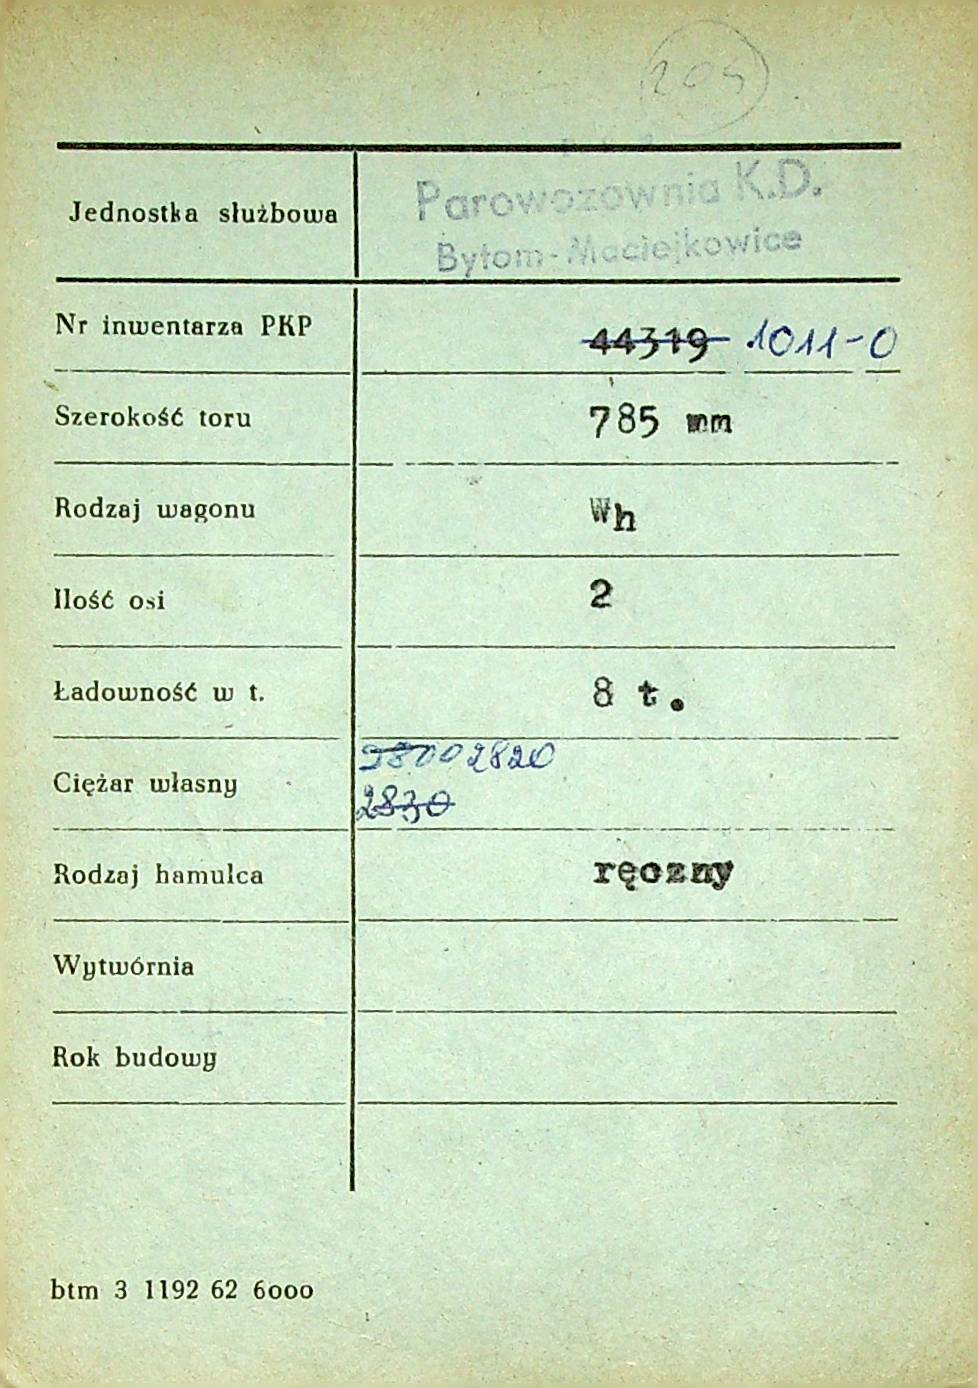 204
Jednostka służbowa
Parowozownia K.D.
Bytom-Maciejkowice
Nr inwentarza PKP 44319 1011-0
Szerokość toru 785 mm
Rodzaj wagonu Wh
Ilość osi 2
Ładowność w t. 8 t.
Ciężar własny 2820
2830
Rodzaj hamulca ręczny
Wytwórnia
Rok budowy
btm 3 1192 62 6000